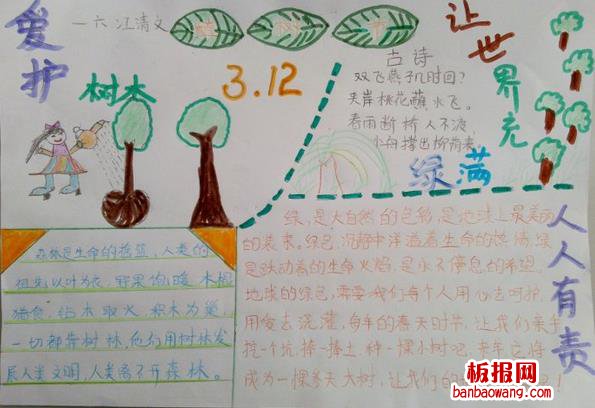 爱护
树木
一六 江清文
植 树 节
3.12
让世界充
满
绿
人人有责
古诗
双飞燕子几时回?
夹岸桃花蘸水飞。
春雨断桥人不渡
小舟撑出柳荫来。
森林是生命的摇篮,人类的
祖先以叶为衣,野果饱暖,木棍
猎食,钻木取火,积木为巢,
一切都靠树林,他们用树林发
展人类文明,人类离不开森林。
绿,是大自然的色彩,是地球上最美丽
的装束。绿色,沉静中洋溢着生命的热情,绿
是跃动着的生命火焰,是永不停息的希望。
地球的绿色,需要我们每个人用心去呵护,
用爱去浇灌,每年的春天时节,让我们亲手
挖一个坑,捧一捧土,种一棵小树吧,来年它将
成为一棵参天大树,让我们的
板报网
banbaowang.com